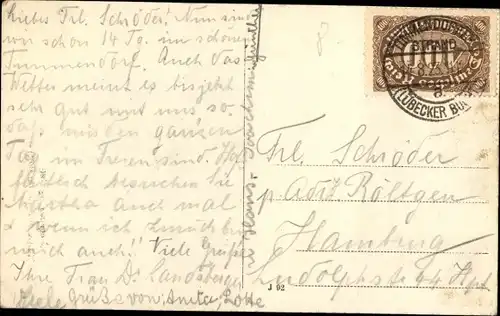 Liebes Frl. Schröder! Nun sind
wir schon 14 Tg. im schönen
Timmendorf. Auch das
Wetter meint es bis jetzt
sehr gut mit uns so
daß wir den ganzen
Tag im Freien sind. Hof
fentlich besuchen Sie
Martha auch mal
u wenn ich zurück bin
mich auch! Viele Grüße
Ihre Frau Dr. Landsberg
Viele Grüße von Anita, Lotte
u Hans-Joachim
STRAND
(LÜBECKER BU
Frl. Schröder
p. Adr. Röltgen
Hamburg
Ludolphstr. 64 Hpt.
J 92